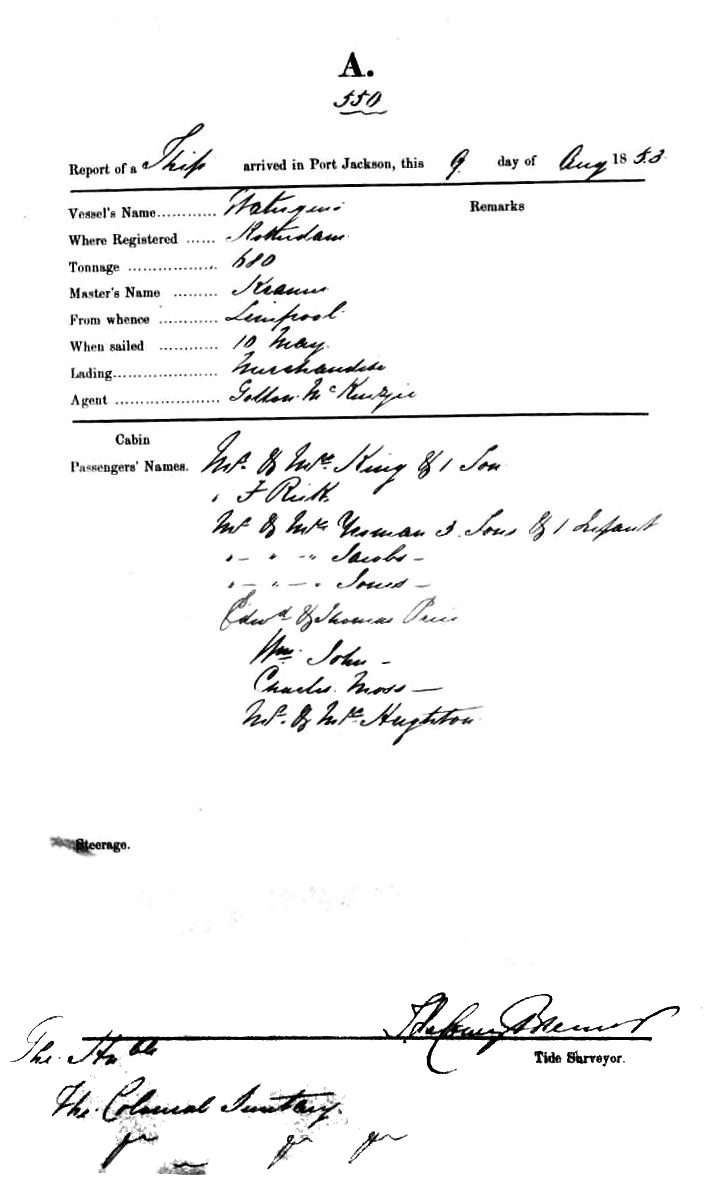 A.
550
Report of a Ship arrived in Port Jackson, this 9 day of Aug 1853
Vessel's Name............ Remarks
Where Registered ...... Rotterdam
Tonnage .................. 680
Master's Name ......... Kramer
From whence ............ Liverpool
When sailed ............ 10 May
Lading..................... Merchandise
Agent ..................... McKenzie
Cabin
Passengers' Names. Mr. & Mrs. King & 1 Son
" F
Mr & Mrs Yeoman 3 Sons & 1 Infant
" – " – " Jacobs –
" – " – " Jones –
Edwd & Thomas
Wm. John –
Charles Moss –
Mr. & Mrs. Hughston
Steerage.
Tide Surveyor.
The Honble
The Colonial Secretary